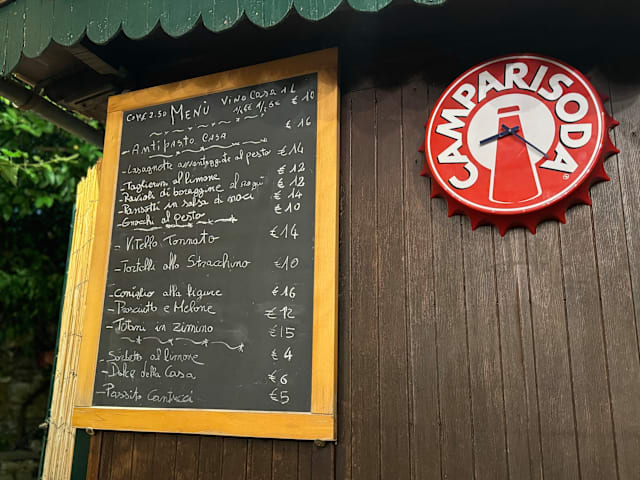 COP. € 2.50 MENÙ VINO CASA 1 L € 10
1/4 € 1/2 5€
- Antipasto CASA € 16
- Lasagnette avvantaggiate al pesto € 14
- Taglierini al limone € 12
- Ravioli di boraggine al ragù € 12
- Pansotti in salsa di noci € 14
- Gnocchi al pesto € 10
- Vitello Tonnato € 14
- Tortelli allo Stracchino € 10
- Coniglio alla ligure € 16
- Prosciutto e Melone € 12
- Totani in zimino € 15
- Sorbetto al limone € 4
- Dolce della Casa € 6
- Passito Cantucci € 5
CAMPARISODA
®